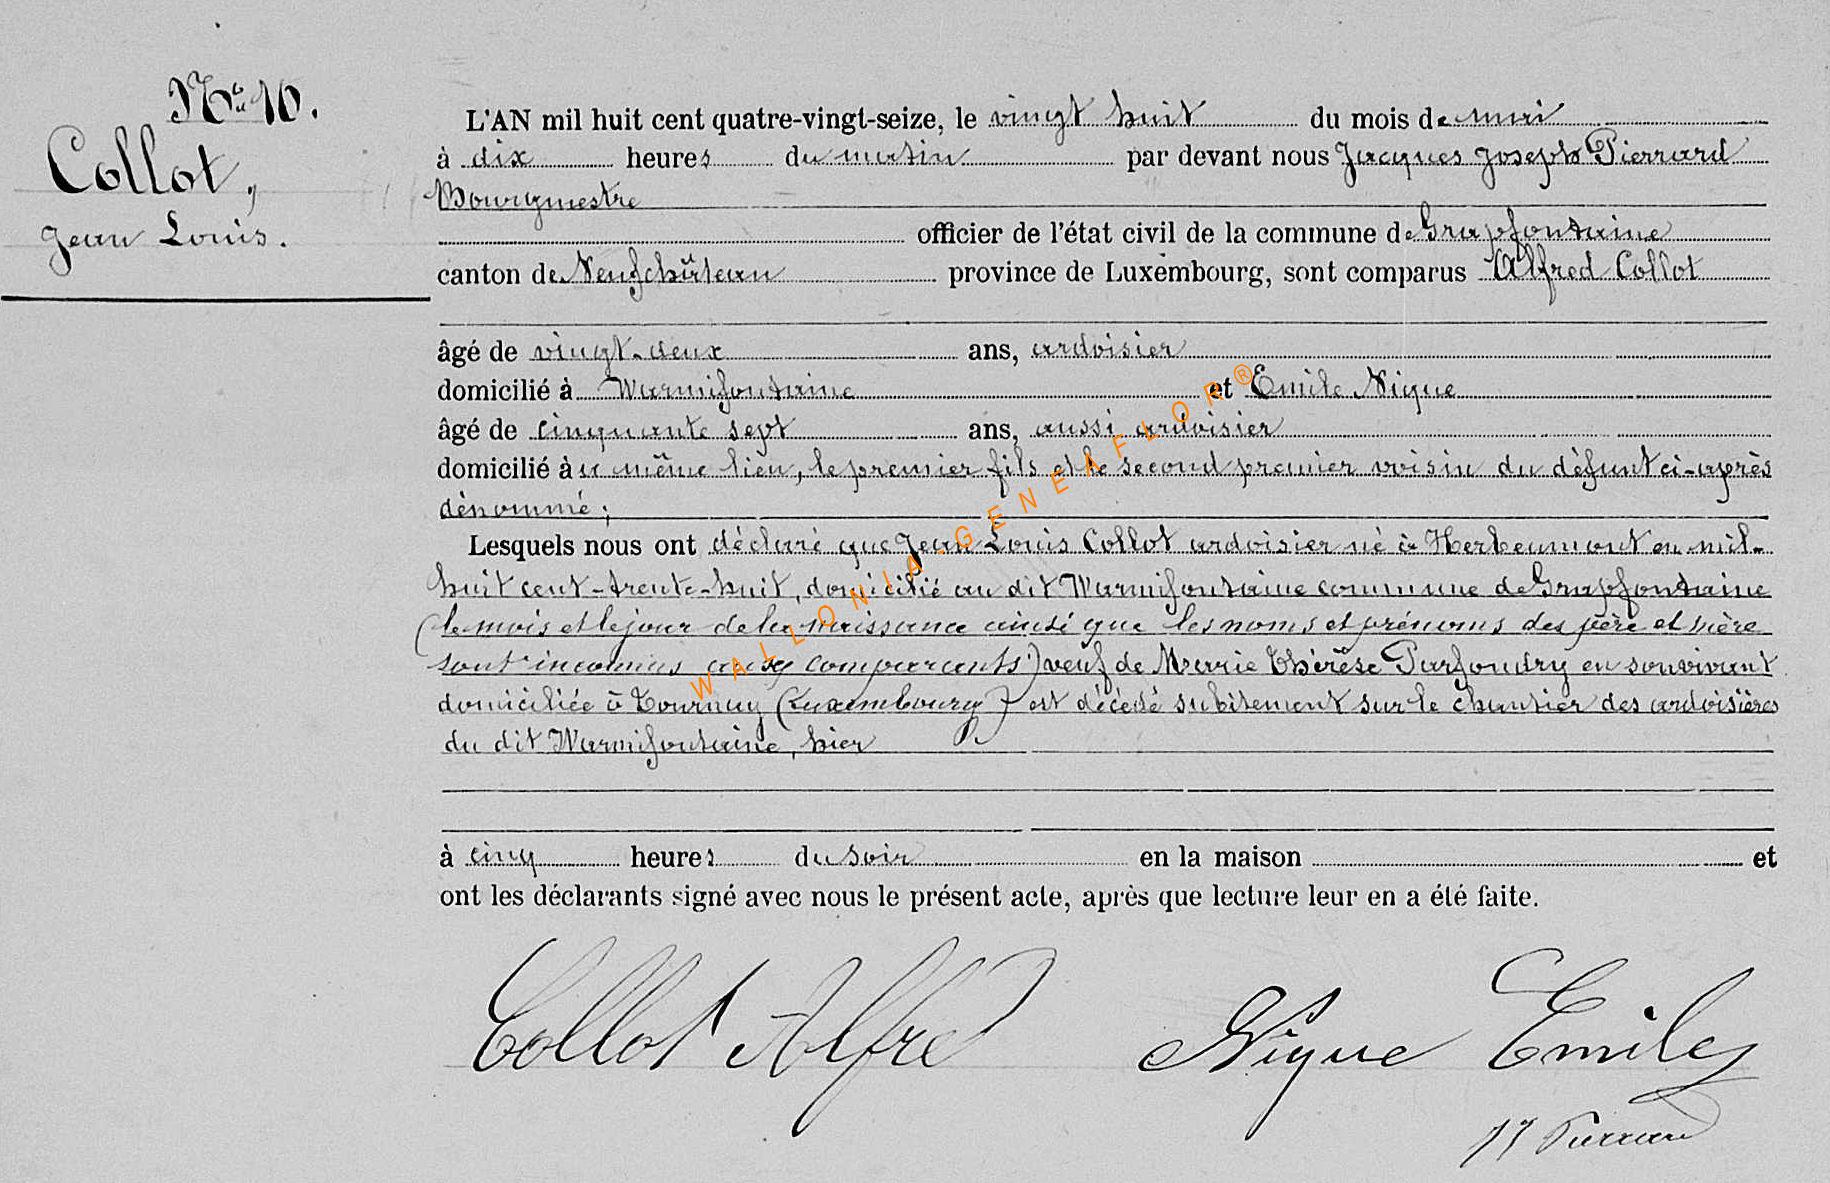 N° 10.
Collot,
Jean Louis.
L'AN mil huit cent quatre-vingt-seize, le vingt huit du mois de mai
à dix heures du matin par devant nous Jacques Joseph Pierrard
Bourgmestre
officier de l'état civil de la commune de Grapfontaine
canton de Neufchâteau province de Luxembourg, sont comparus Alfred Collot
âgé de vingt-deux ans, ardoisier
domicilié à Warmifontaine et Emile Nique
âgé de cinquante sept ans, aussi ardoisier
domicilié au même lieu, le premier fils et le second premier voisin du défunt ci-après
dénommé ;
Lesquels nous ont déclaré que Jean Louis Collot ardoisier né à Herbeumont en mil-
huit cent-trente-huit, domicilié au dit Warmifontaine commune de Grapfontaine
(le mois et le jour de la naissance ainsi que les noms et prénoms des père et mère
sont inconnus aux comparants) veuf de Marie Thérèse Parfondry en son vivant
domiciliée à Tournay (Luxembourg) est décédé subitement sur le chantier des ardoisières
du dit Warmifontaine, hier
à cinq heures du soir en la maison et
ont les déclarants signé avec nous le présent acte, après que lecture leur en a été faite.
Collot Alfred Nique Emile
JJ Pierrard
WALLONIA-GENEAFLOR®